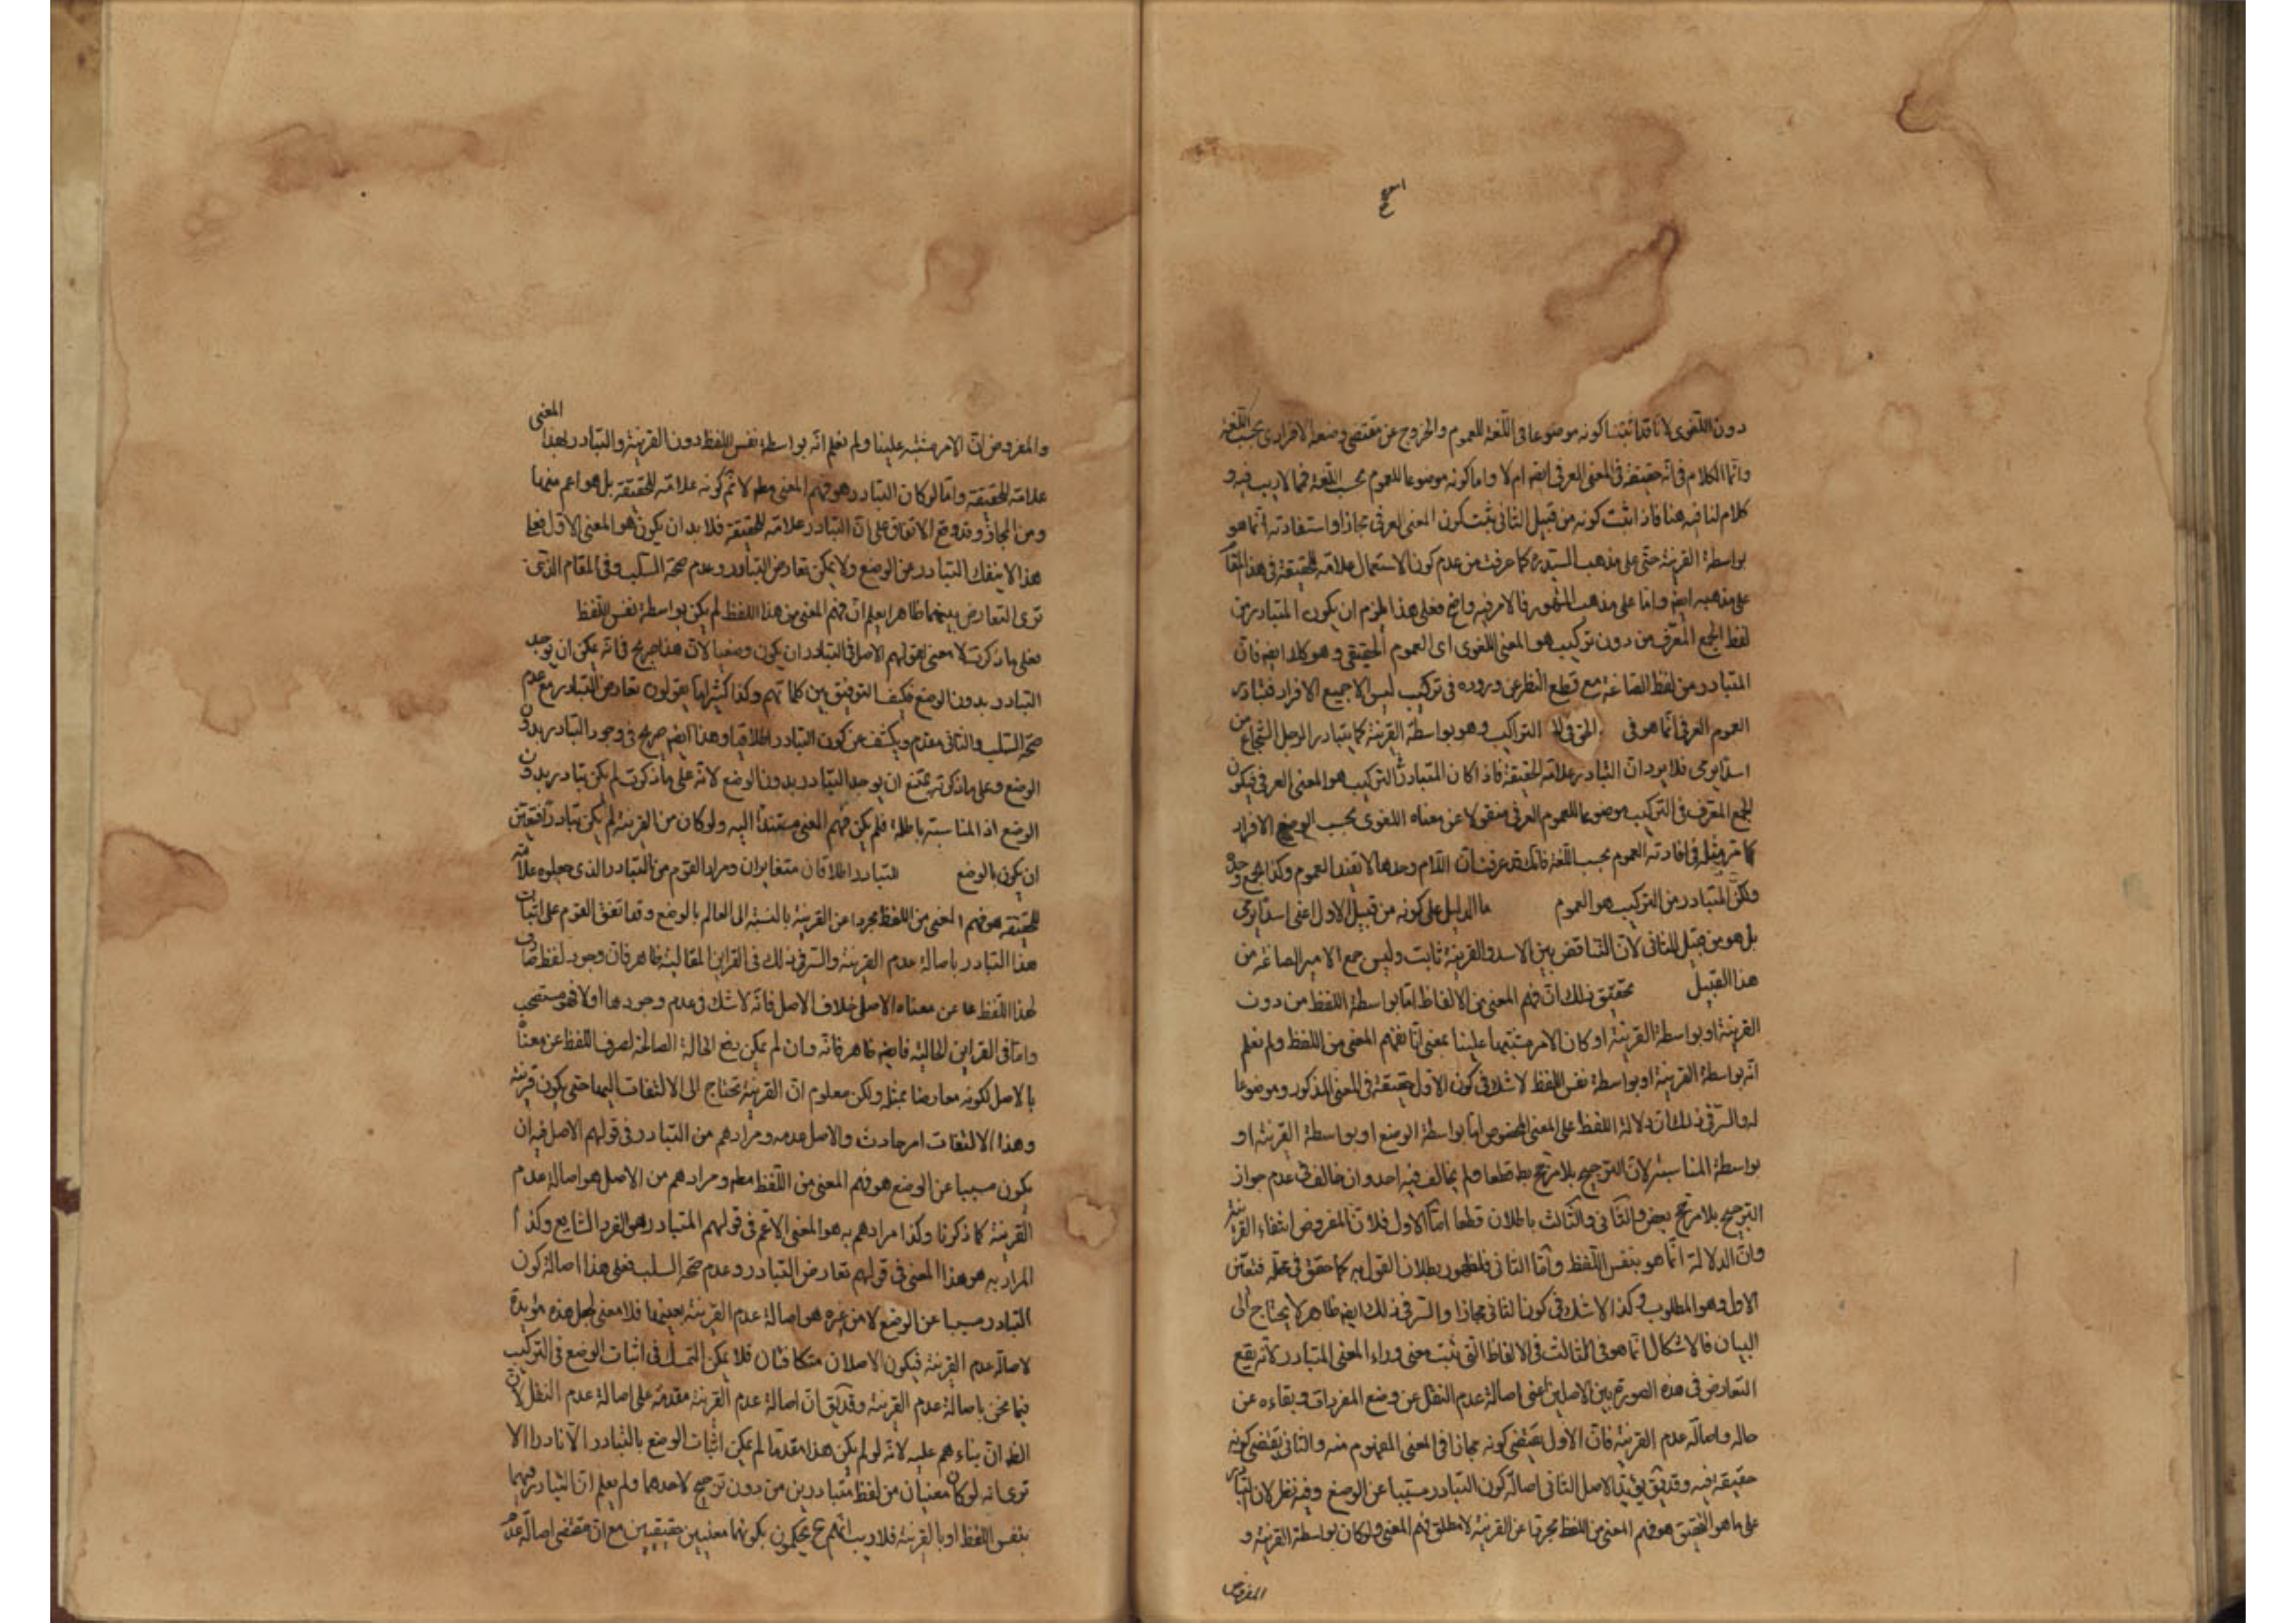 اسعج
دون اللغوى لانا قد اثبتنا كونه موضوعا فى اللغة للعموم والخروج عن مقتضى وضعه الافرادى بحسب اللغة
وانما الكلام فى انه حقيقة فى المعنى العرفى ايضا ام لا واما كونه موضوعا للعموم بحسب اللغة فمما لا ريب فيه و
كلام لنا فيه هنا فاذا ثبت كونه من قبيل الثانى يثبت كون المعنى العرفى مجازا واستفادته انما هو
بواسطة القرينة حتى على مذهب السيد ره كما عرفت من عدم كون الاستعمال علامة للحقيقة فى هذا المقام
على مذهبه ايضا واما على مذهب المشهور فالامر فيه واضح فعلى هذا يلزم ان يكون المتبادر من
لفظ الجمع المعرف من دون تركيب هو المعنى اللغوى اى العموم الحقيقى وهو كذا ايضا فان
المتبادر من لفظ الصاغة مع قطع النظر عن وروده فى تركيب ليس الا جميع الافراد فتبادر
العموم العرفى انما هو فى التراكيب وهو بواسطة القرينة كما يتبادر الرجل الشجاع من
اسد يرمى فلا يرد ان التبادر علامة الحقيقة فاذا كان المتبادر التركيب هو المعنى العرفى فيكون
الجمع المعرف فى التركيب موضوعا للعموم العرفى منقولا عن معناه اللغوى بحسب الوضع الافراد
كما مر مثله فى افادته العموم بحسب اللغة فانك قد عرفت ان اللام وحدها لا يفيد العموم وكذا الجمع وحده
ولكن المتبادر من التركيب هو العموم ما الدليل على كونه من قبيل الاول اعنى اسد يرمى
بل هو من قبيل الثانى لان التناقض بين الاسد والقرينة ثابت وليس جمع الامير الصاغة من
هذا القبيل تحقيق ذلك ان فهم المعنى من الالفاظ اما بواسطة اللفظ من دون
القرينة او بواسطة القرينة او كان الامر مشتبها علينا بمعنى انا نفهم المعنى من اللفظ ولم نعلم
انه بواسطة القرينة او بواسطة نفس اللفظ لا شك فى كون الاول حقيقة فى المعنى المذكور وموضوعا
له والسر فى ذلك ان دلالة اللفظ على المعنى المخصوص اما بواسطة الوضع او بواسطة القرينة او
بواسطة المناسبة لان الترجيح بلا مرجح بط قطعا ولم يخالف فيه احد وان خالف فى عدم جواز
الترجيح بلا مرجح بعض والثانى والثالث باطلان قطعا اما الاول فلان المفروض انتفاء القرينة
وان الدلالة انما هو بنفس اللفظ واما الثانى فلظهور بطلان القول به كما حقق فى محله فتعين
الاول وهو المطلوب وكذا لا شك فى كون الثانى مجازا والسر فى ذلك ايضا ظاهر لا يحتاج الى
البيان فالاشكال انما هو فى الثالث فى الالفاظ التى ثبت معنى وراء المعنى المتبادر لانه يقع
التعارض فى هذه الصورة بين الاصلين اعنى اصالة عدم النقل عن وضع المفردات وبقاءه عن
حاله واصالة عدم القرينة فان الاول يقتضى كونه مجازا فى المعنى المفهوم منه والثانى يقتضى كونه
حقيقة فيه وقد يق يؤيد الاصل الثانى اصالة كون التبادر مسببا عن الوضع وفيه نظر لان التبادر
على ما هو التحقيق هو فهم المعنى من اللفظ مجردا عن القرينة لا مطلق فهم المعنى ولو كان بواسطة القرينة و
المفروض
المعنى
والمفروض ان الامر مشتبه علينا ولم نعلم انه بواسطة نفس اللفظ دون القرينة والتبادر بهذا
علامة للحقيقة واما لو كان التبادر هو فهم المعنى مطه لا نم كونه علامة للحقيقة بل هو اعم منها
ومن المجاز وقد وقع الاتفاق على ان التبادر علامة للحقيقة فلا بد ان يكون هو المعنى الاول فعلى
هذا لا ينفك التبادر عن الوضع ولا يمكن تعارض التبادر وعدم صحة السلب وفى المقام الذى
ترى التعارض بينهما ظاهرا يعلم ان فهم المعنى من هذا اللفظ لم يكن بواسطة نفس اللفظ
فعلى ما ذكرت لا معنى لقولهم الاصل فى التبادر ان يكون وضعيا لان هذا صريح فى انه يمكن ان يوجد
التبادر بدون الوضع فكيف التوفيق بين كلماتهم وكذا كثيرا ما يقولون تعارض التبادر مع عدم
صحة السلب والثانى مقدم ويكشف عن كون التبادر اطلاقيا وهذا ايضا صريح فى وجود التبادر بدون
الوضع وعلى ما ذكرته يمتنع ان يوجد التبادر بدون الوضع لانه على ما ذكرت لم يكن تبادر بدون
الوضع اذ المناسبة باطلة فلم يكن فهم المعنى مستندا اليه ولو كان من القرينة لم يكن تبادر فتعين
ان يكون بالوضع للتبادر اطلاقان متغايران ومراد القوم من التبادر الذى جعلوه علامة
للحقيقة هو فهم المعنى من اللفظ مجردا عن القرينة بالنسبة الى العالم بالوضع وقد اتفق القوم على اثبات
هذا التبادر باصالة عدم القرينة والسر فى ذلك فى القراين المقالية ظاهر فان وجود لفظ صارف
لهذا اللفظ عن معناه الاصلى خلاف الاصل فانه لا شك فى عدم وجودها اولا فهو مستصحب
واما فى القراين الحالية فايضا ظاهر فانه وان لم يمكن نفى الحالة الصالحة لصرف اللفظ عن معناه
بالاصل لكونه معارضا بمثله ولكن معلوم ان القرينة تحتاج الى الالتفات اليها حتى يكون قرينة
وهذا الالتفات امر حادث والاصل عدمه ومرادهم من التبادر فى قولهم الاصل فيه ان
يكون مسببا عن الوضع هو فهم المعنى من اللفظ مطه ومرادهم من الاصل هو اصالة عدم
القرينة كما ذكرنا وكذا مرادهم به هو المعنى الاعم فى قولهم المتبادر هو الفرد الشايع وكذا
المراد به هو هذا المعنى فى قولهم تعارض التبادر وعدم صحة السلب فعلى هذا اصالة كون
التبادر مسببا عن الوضع لا من غيره هو اصالة عدم القرينة بعينها فلا معنى لجعل هذه مؤيدة
لاصالة عدم القرينة فيكون الاصلان متكافئان فلا يمكن التمسك فى اثبات الوضع فى التركيب
فيما نحن باصالة عدم القرينة وقد يق ان اصالة عدم القرينة مقدمة على اصالة عدم النقل لان
الظ ان بناءهم عليه لانه لو لم يكن هذا مقدما لم يمكن اثبات الوضع بالتبادر الا نادرا الا
ترى انه لو كان معنيان من لفظ متبادرين من دون ترجيح لاحدهما ولم يعلم ان التبادر فيهما
بنفس اللفظ او بالقرينة فلا ريب انهم ح يحكمون بكونهما معنيين حقيقيين مع ان مقتضى اصالة عدم